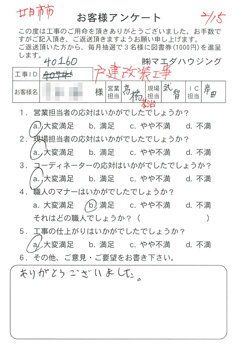 廿日市市
お客様アンケート
2/15
この度は工事のご用命を頂きありがとうございました。お手数で
すがご記入頂き、ご返送頂きますようお願い申し上げます。
ご返送頂いた方から、毎月抽選で3名様に図書券(1000円)を進呈
します。
㈱マエダハウジング
40260
工事ID
戸建改装工事
お客様名
様
営業担当
現場担当
IC担当
1. 営業担当者の応対はいかがでしたでしょうか?
a. 大変満足 b. 満足 c. やや不満 d. 不満
2. 現場担当者の応対はいかがでしたでしょうか?
a. 大変満足 b. 満足 c. やや不満 d. 不満
3. コーディネーターの応対はいかがでしたでしょうか?
a. 大変満足 b. 満足 c. やや不満 d. 不満
4. 職人のマナーはいかがでしたでしょうか?
a. 大変満足 b. 満足 c. やや不満 d. 不満
それはどの職人でしょうか? ( )
5. 工事の仕上がりはいかがでしたでしょうか?
a. 大変満足 b. 満足 c. やや不満 d. 不満
6. その他、ご意見・ご要望をお書き下さい。
ありがとうございました。